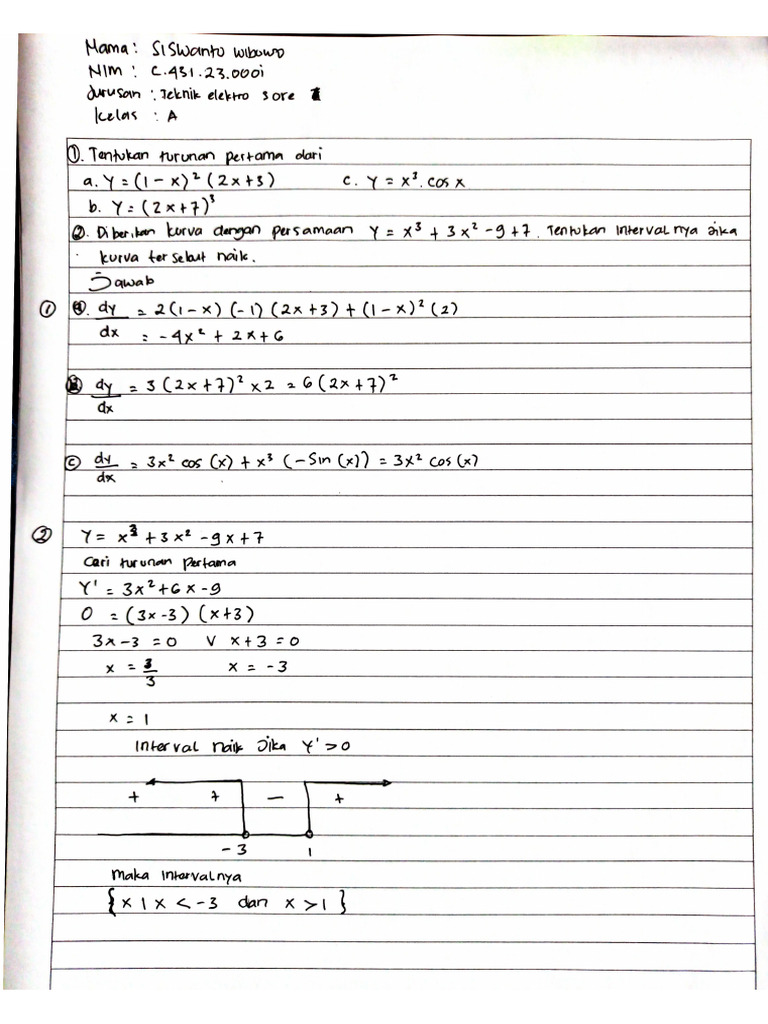 Nama : Siswanto Wibowo
NIM : C.431.23.0001
Jurusan : Teknik elektro sore
Kelas : A
①. Tentukan turunan pertama dari
a. Y = (1 - x)² (2x+3) c. Y = x³. cos x
b. Y = (2x+7)³
②. Diberikan kurva dengan persamaan Y = x³ + 3x² - 9 + 7. Tentukan intervalnya jika
kurva tersebut naik.
Jawab
① a. dy/dx = 2(1-x) (-1) (2x+3) + (1-x)² (2)
= -4x² + 2x + 6
b. dy/dx = 3 (2x+7)² x 2 = 6 (2x+7)²
c. dy/dx = 3x² cos (x) + x³ (-Sin (x)) = 3x² cos (x)
② Y = x³ + 3x² - 9x + 7
Cari turunan pertama
Y' = 3x² + 6x - 9
0 = (3x-3) (x+3)
3x - 3 = 0 V x + 3 = 0
x = 3/3 x = -3
x = 1
Interval naik Jika Y' > 0
+ + - +
-3 1
Maka Intervalnya
{x | x < -3 dan x > 1}